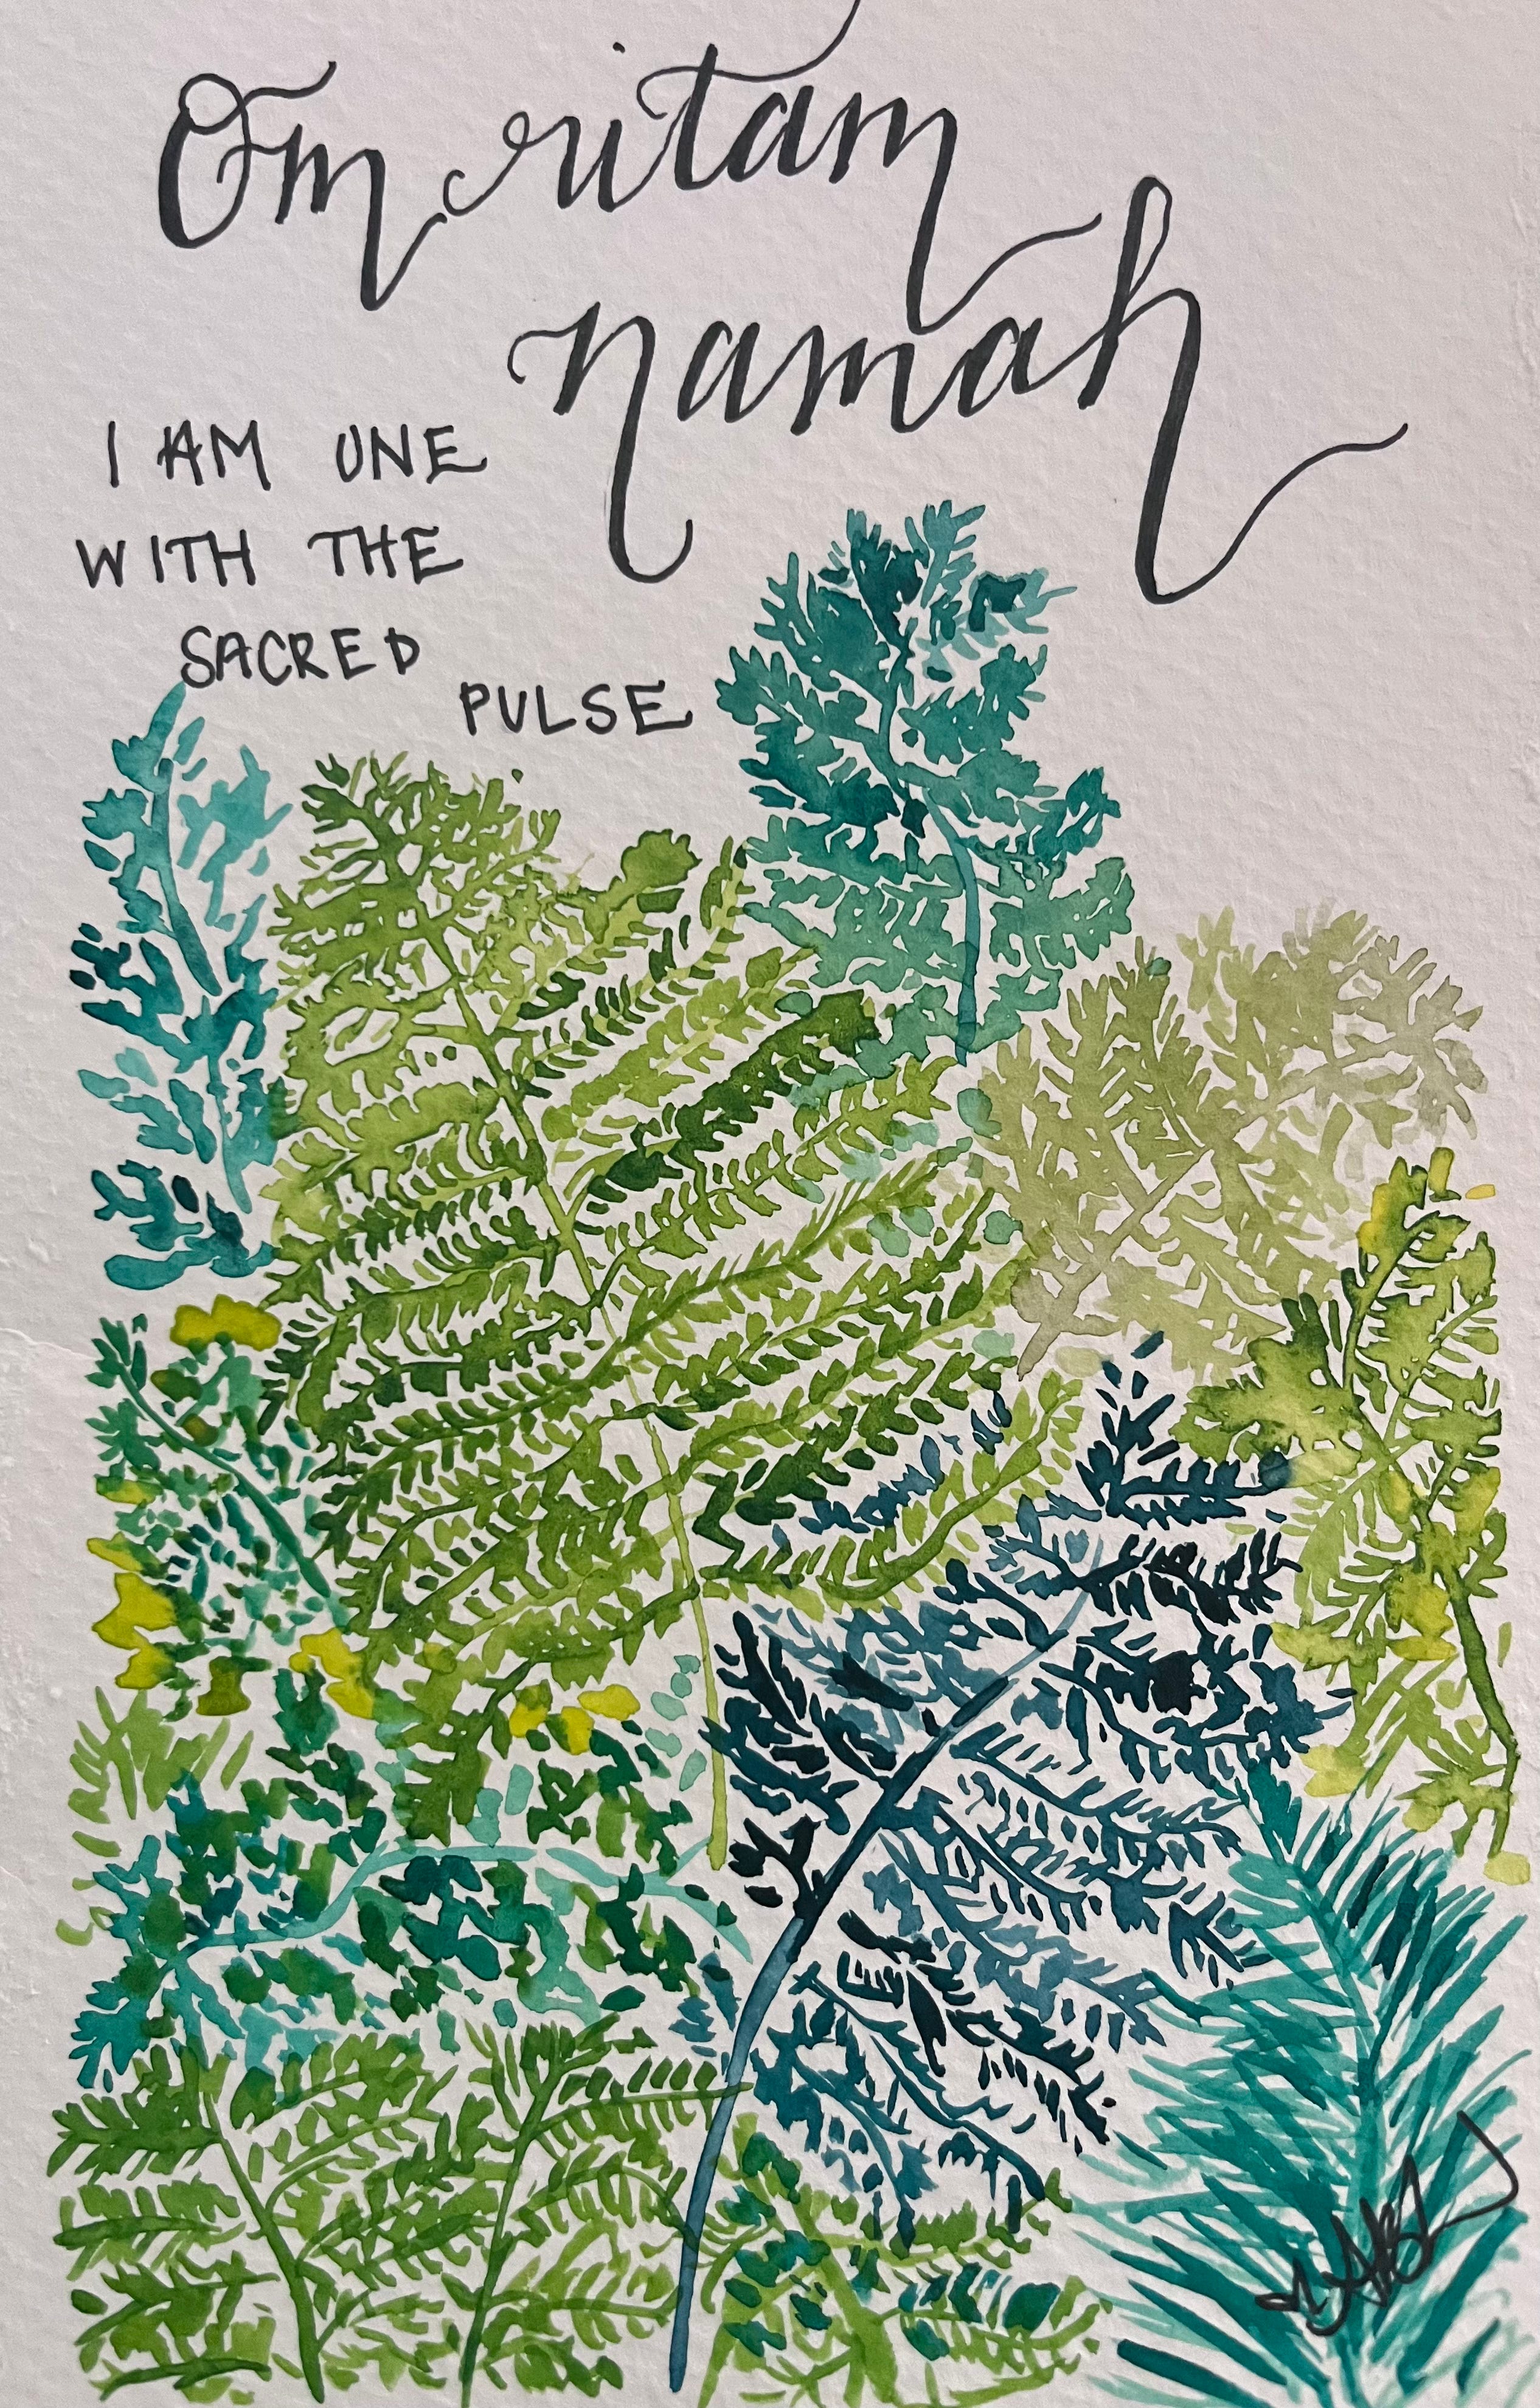 Om ritam
namah
I AM ONE
WITH THE
SACRED
PULSE